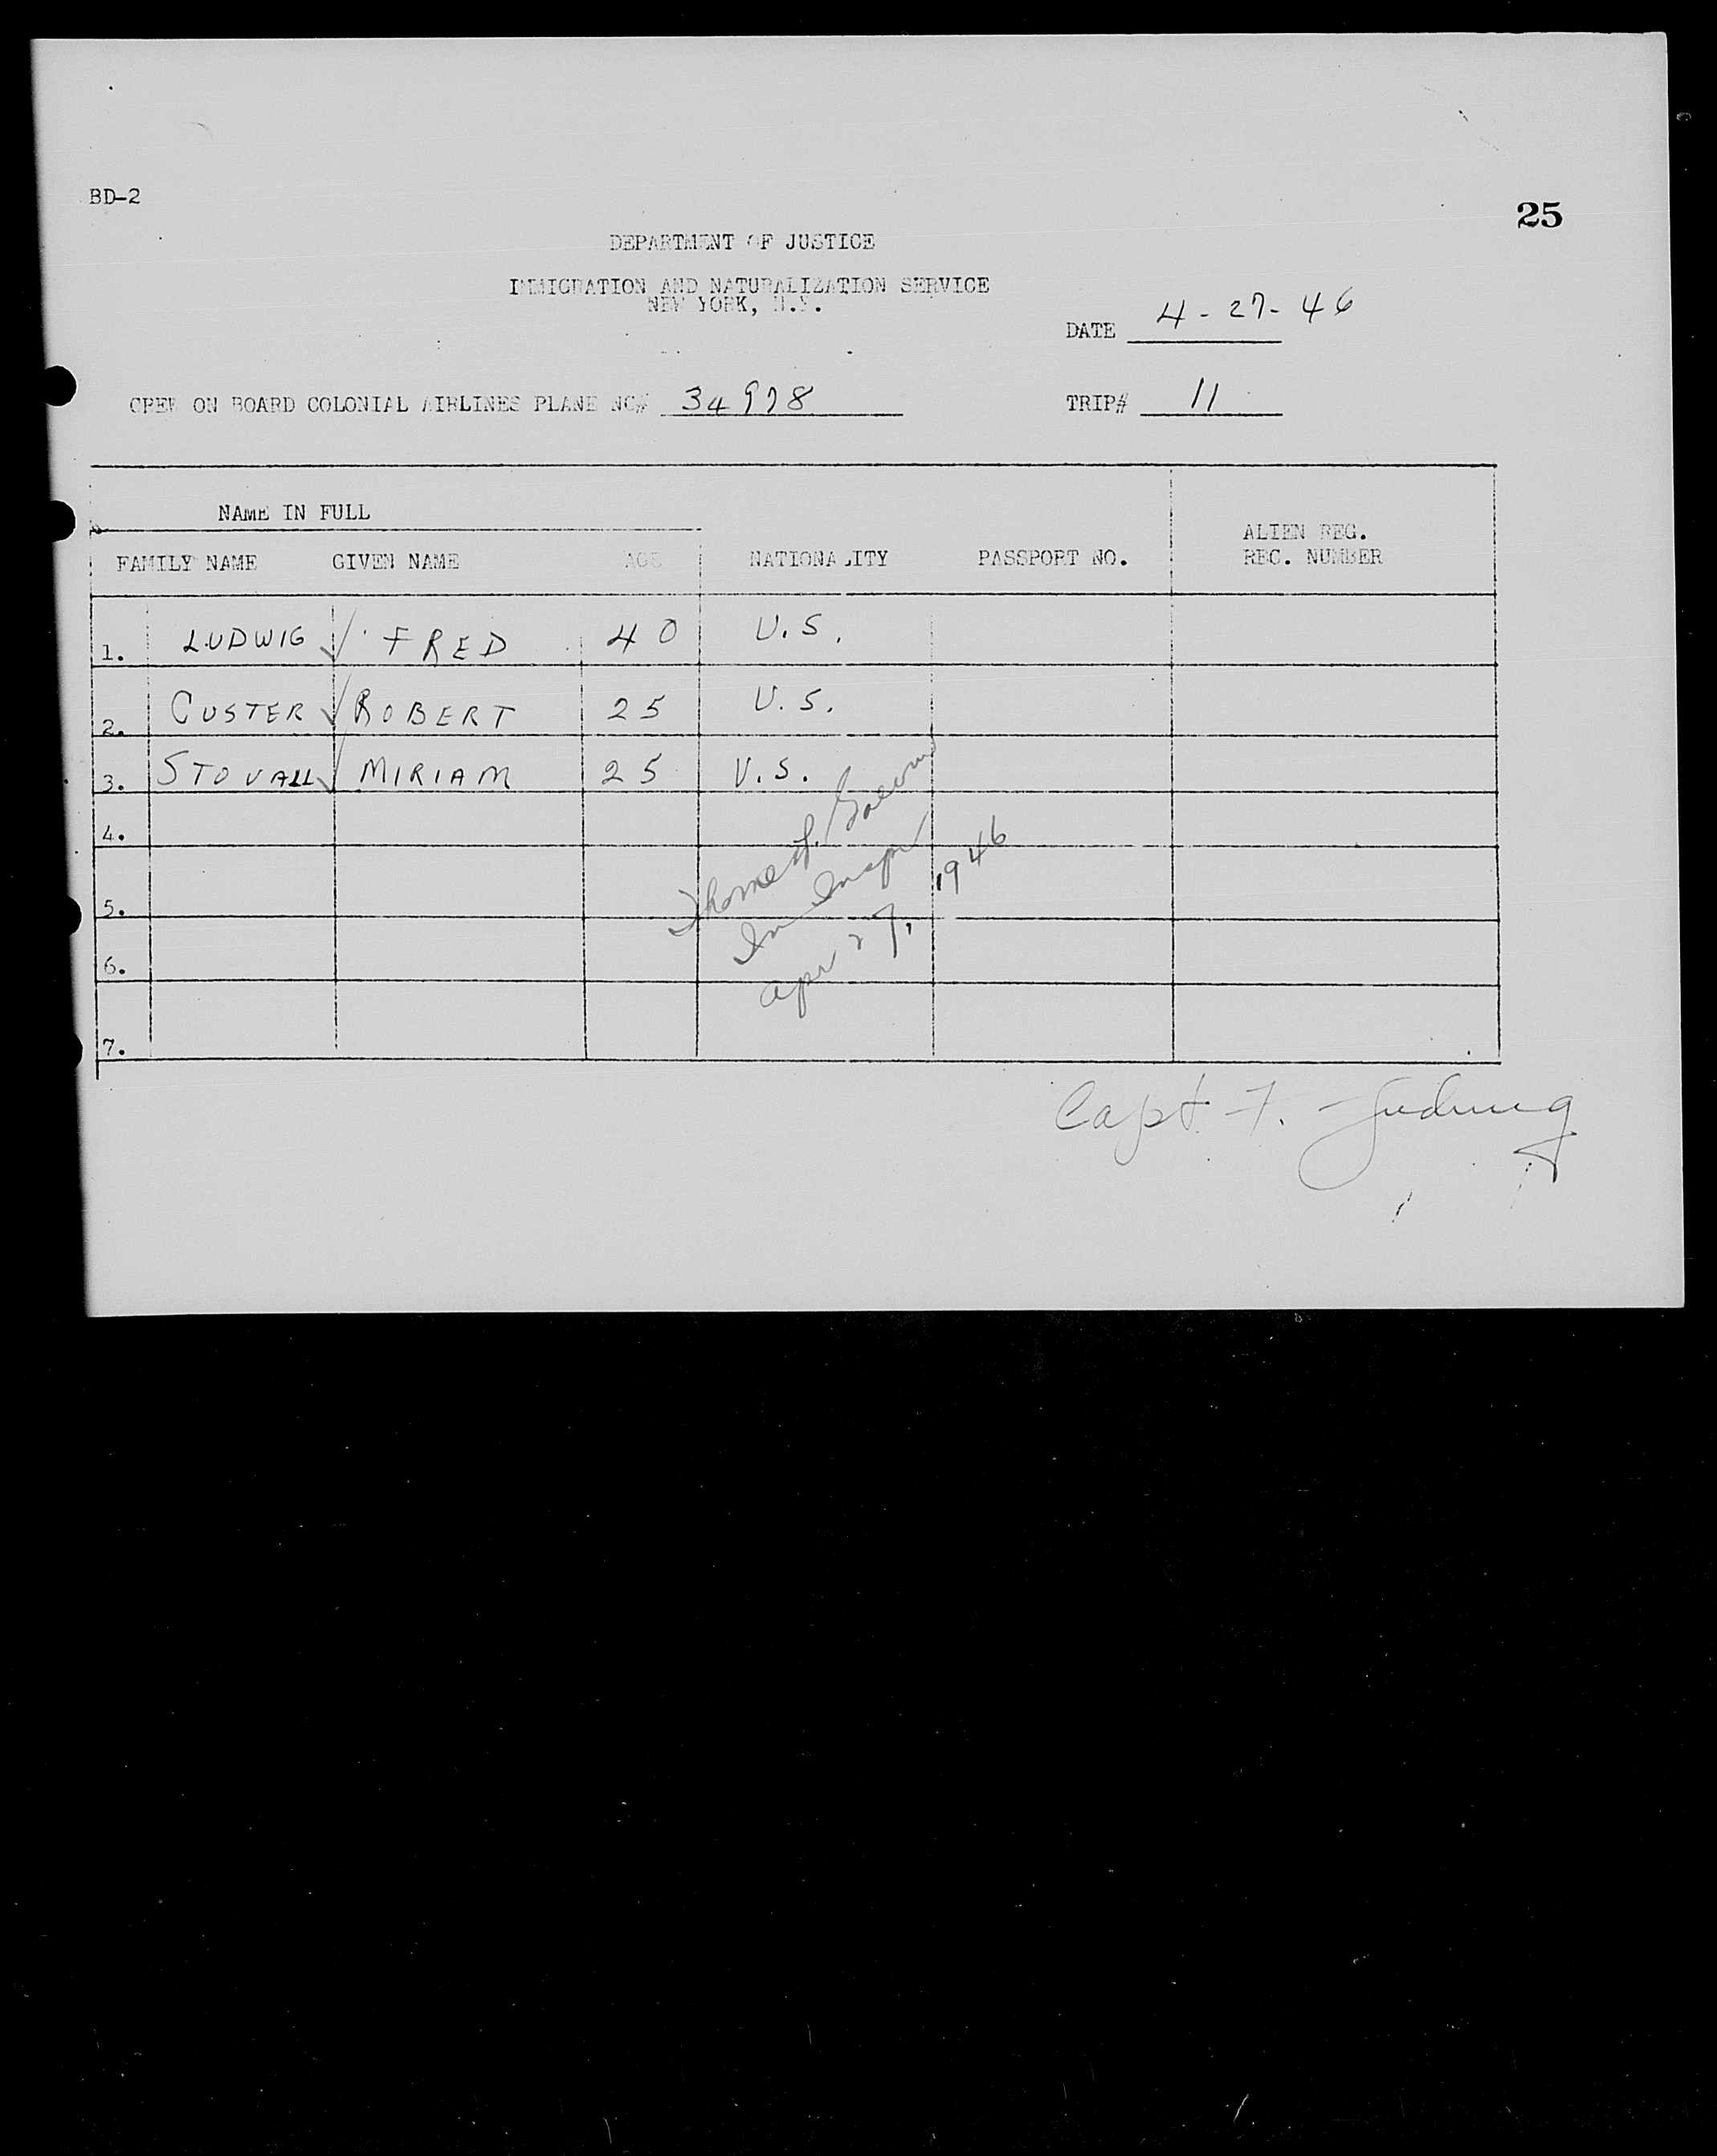 BD-2
25
DEPARTMENT OF JUSTICE
IMMIGRATION AND NATURALIZATION SERVICE
NEW YORK, N.Y.
DATE 4-27-46
CREW ON BOARD COLONIAL AIRLINES PLANE NC# 34978
TRIP# 11
NAME IN FULL
ALIEN REG.
FAMILY NAME GIVEN NAME AGE NATIONALITY PASSPORT NO. REC. NUMBER
1. LUDWIG ✓ FRED 40 U.S.
2. CUSTER ✓ ROBERT 25 U.S.
3. STOVALL ✓ MIRIAM 25 U.S.
4.
5.
6.
7.
Thomas
Im Inspr
Apr 27, 1946
Capt F. Ludwig